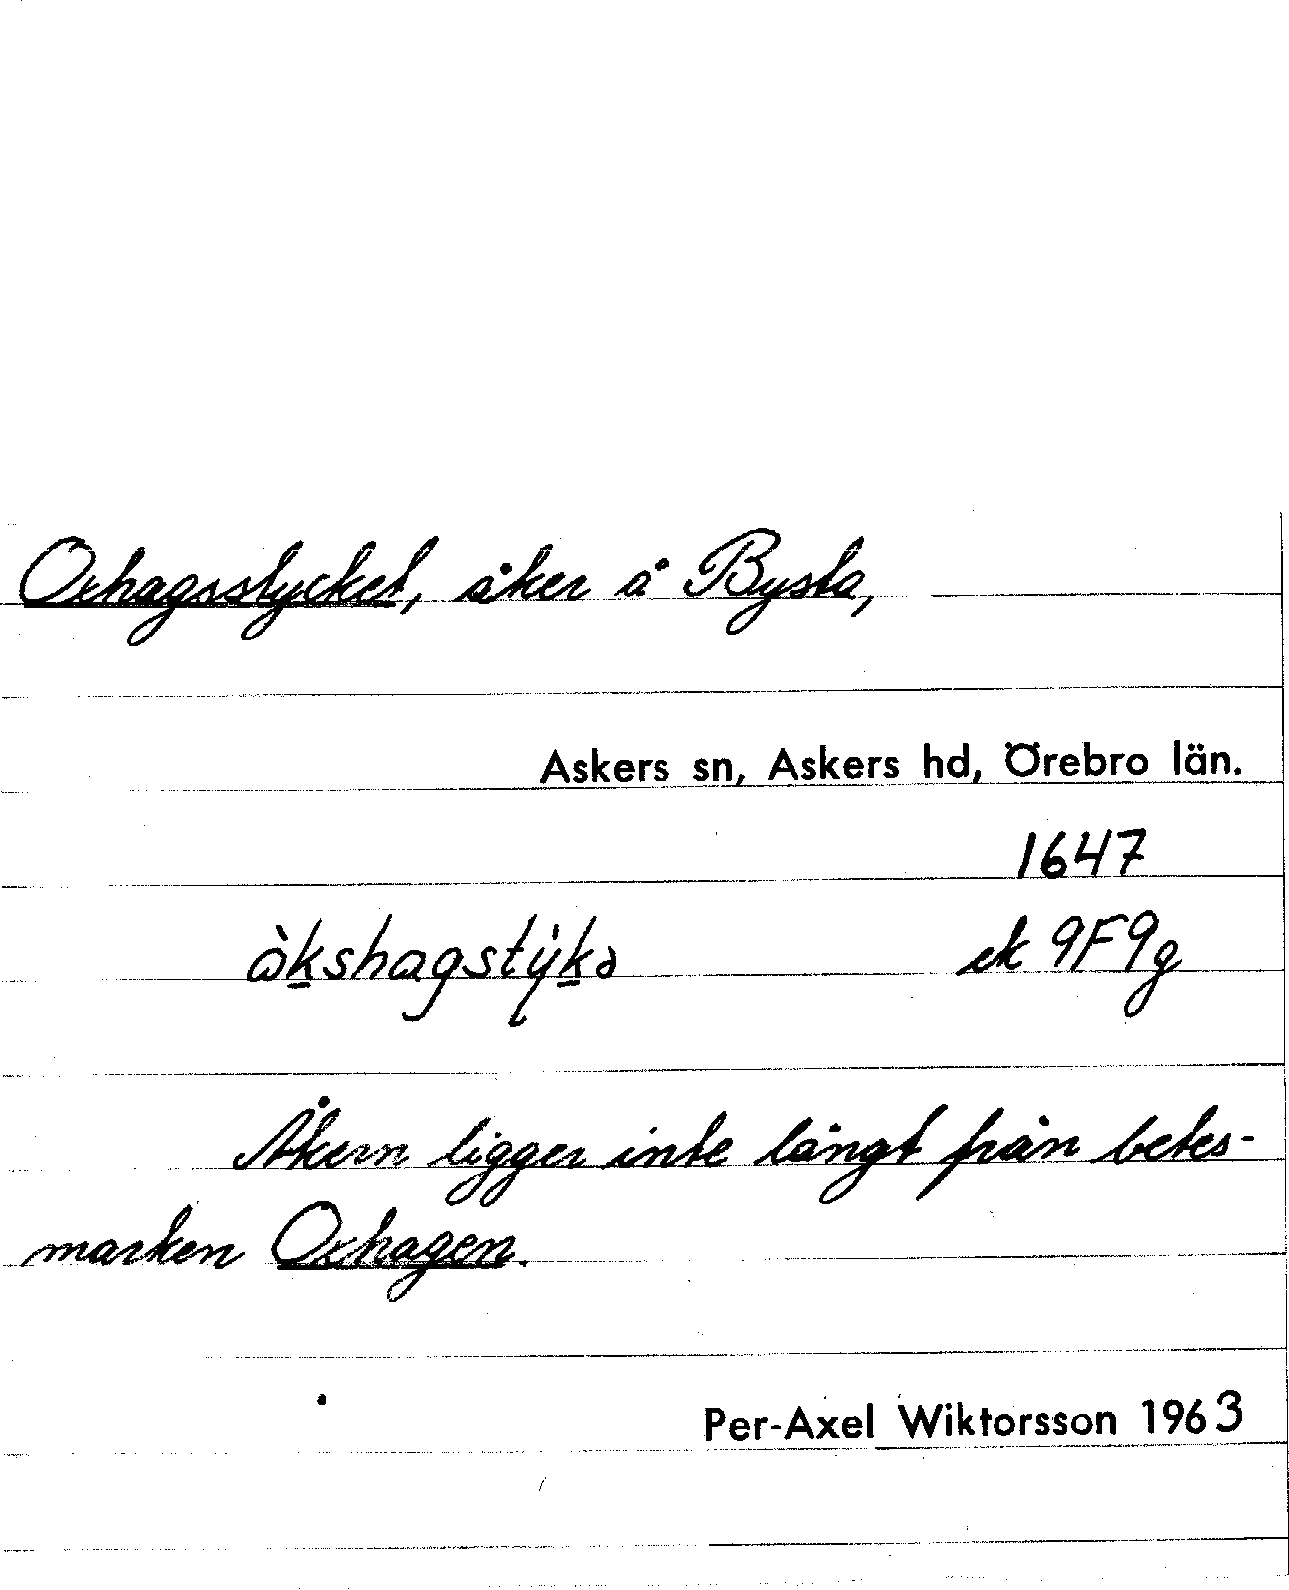 Oxhagsstycket, åker å Bysta,
Askers sn, Askers hd, Örebro län.
1647
òkshagstýkə ek 9F9g
Åkern ligger inte långt från betes-
marken Oxhagen.
Per-Axel Wiktorsson 1963